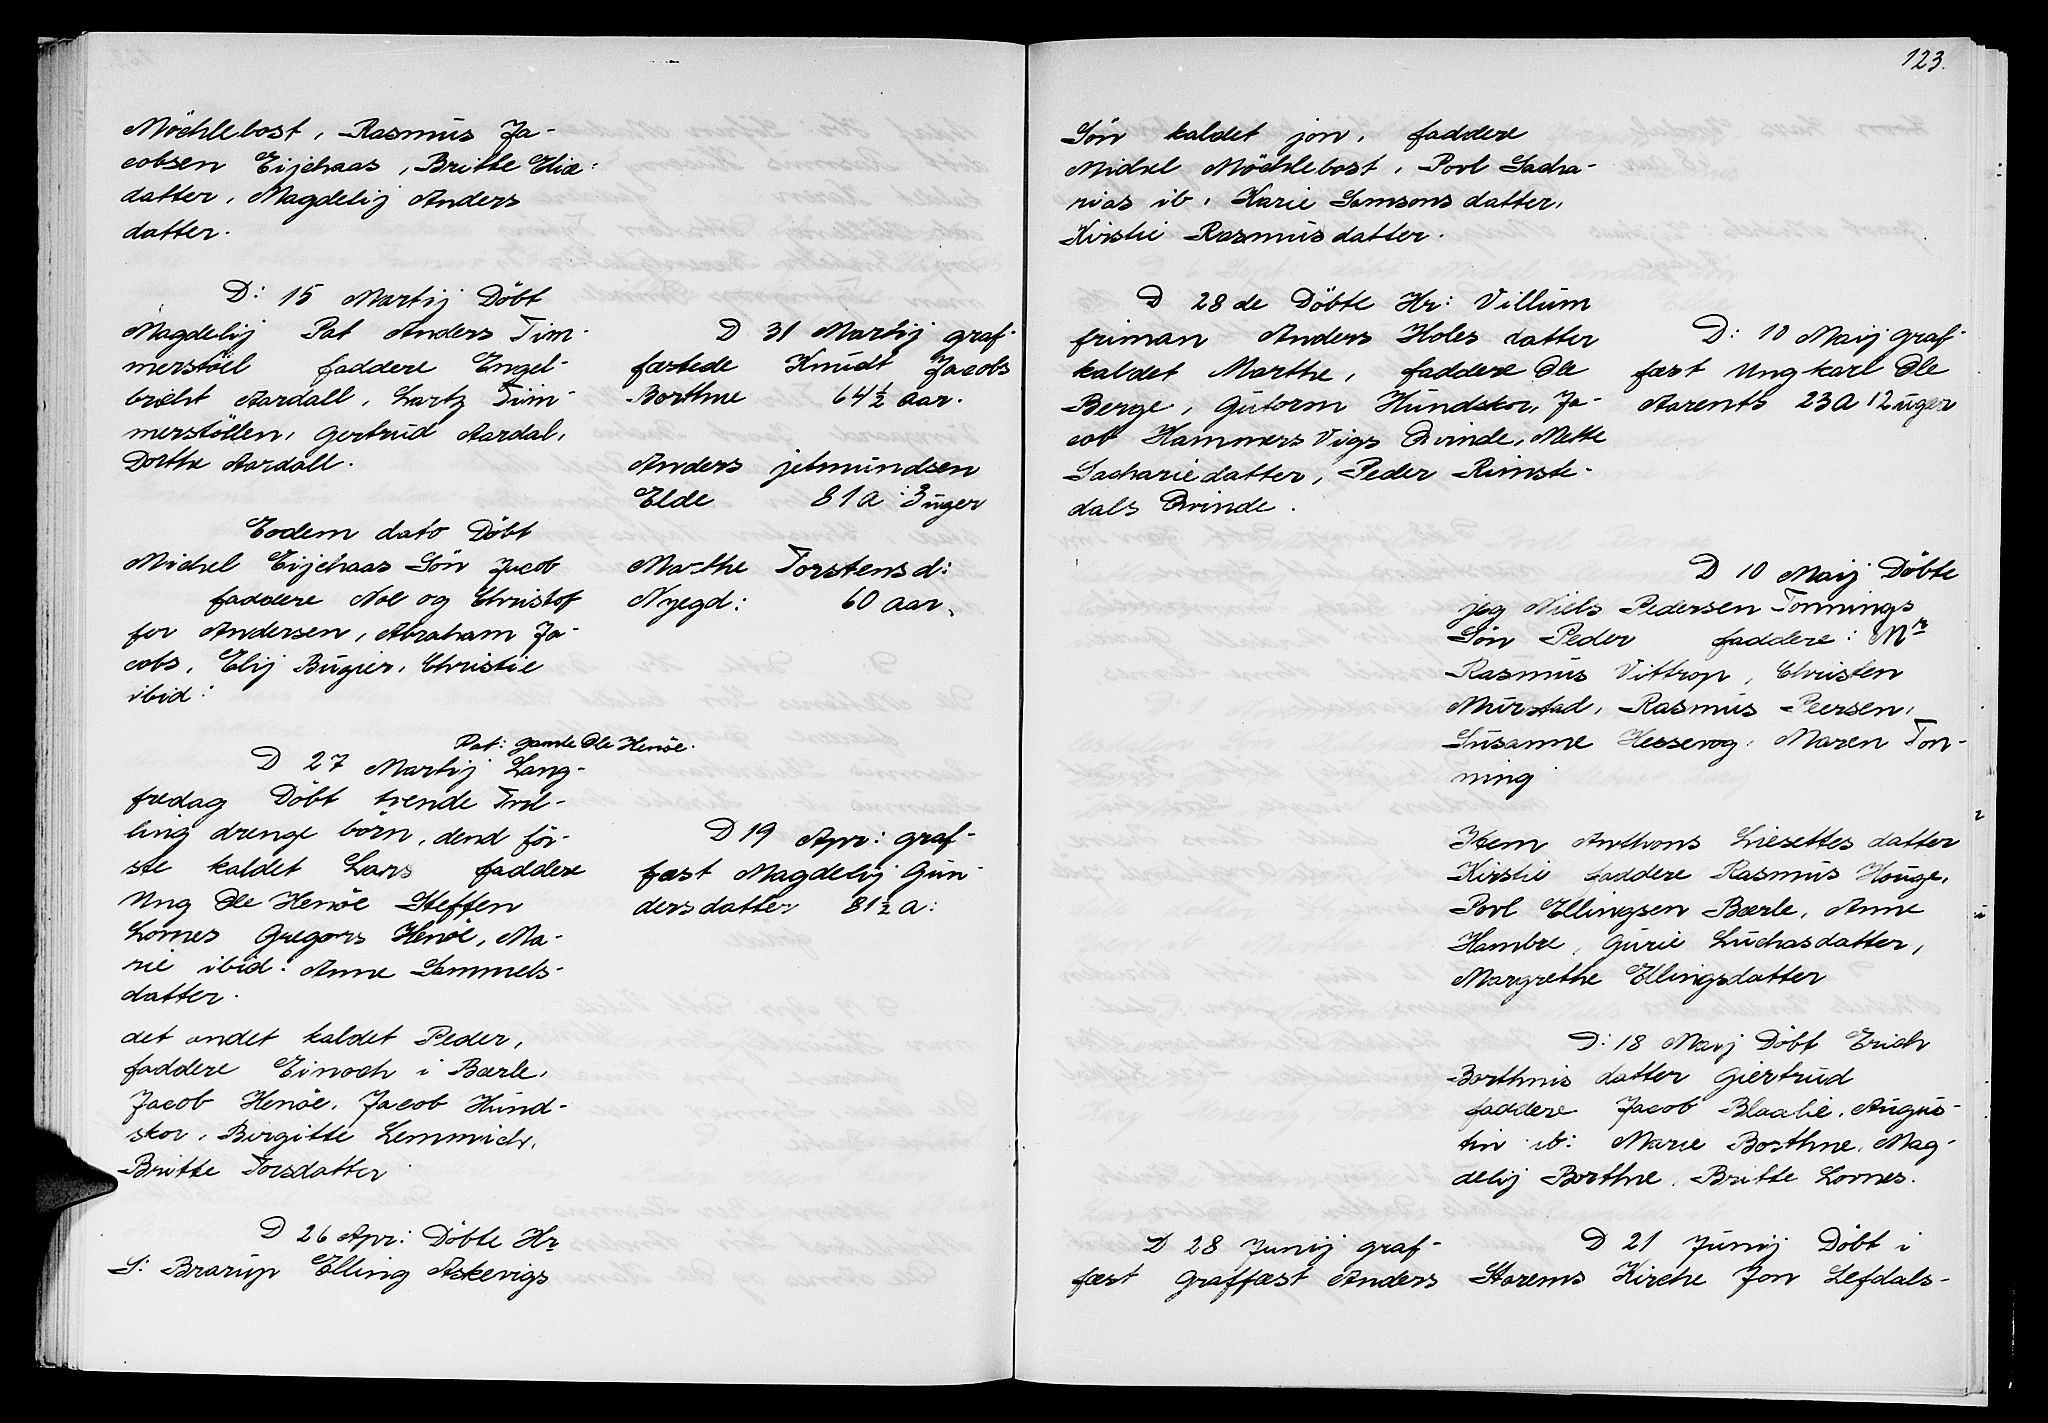 Möchlebost, Rasmus Ja-
cobsen Eijchaas, Britte Elia:
datter, Magdelij Anders
datter.
D: 15 Martij Döbt
Magdelij Pat Anders Tim-
merstöel faddere Engel-
bricht Aardall, Lartz Tim-
merstöllen, Gertrud Aardal,
Dorthe Aardall.
Eodem dato Döbt
Michel Eijchaas Sön Jacob
faddere Noe og Christof
fer Andersen, Abraham Ja-
cobs, Elij Bugier, Christie
ibid:
Pat: gamle Ole Henöe.
D 27 Martij Lang-
fredag Döbt trende Tvil-
ling drenge börn, dend för-
ste kaldet Lars faddere
Ung Ole Henöe Steffen
Lornes Gregors Henöe, Ma-
rie ibid: Anne Sammels-
datter.
det andet kaldet Peder,
faddere Einoch i Bærle,
Jacob Henöe, Jacob Hund-
skor, Birgitte Lemmich,
Britte Torsdatter
D 26 Apr: Döbte Hr
S: Brarup Elling Askevigs
D 31 Martij graf-
fæstede Knudt Jacobs
Borthne 64½ aar.
Anders jetmundsen
Elde 81a: 3 uger
Marthe Torstensd:
Nyegd: 60 aar.
D 19 Apr: graf-
fæst Magdelij Gun-
dersdatter 81½ a:
123.
Sön kaldet jon, faddere
Michel Möchlebost, Povl Sacha-
rias ib, Karie Samsons datter,
Kirstie Rasmusdatter.
D 28 de Döbte Hr: Villum
friman Anders Holes datter
kaldet Marthe, faddere Ole
Berge, Gutorm Hundskor, Ja-
cob Hammers Vigs Qvinde, Mette
Sachariedatter, Peder Rimste-
dals Qvinde.
D: 10 Maij graf-
fæst Ungkarl Ole
Aarents 23a 12 uger
D 10 Maij Döbte
jeg Niels Pedersen Tonnings
Sön Peder faddere: Mr
Rasmus Vittrop, Christen
Murstad, Rasmus Peersen,
Susanne Hessevog, Maren Ton-
ning
Item Anthons Liesettes datter
Kirstie faddere Rasmus Houge,
Povl Ellingsen Bærle, Anne
Hambre, Gurie Luchasdatter,
Margrethe Ellingsdatter
D: 18 Maij Döbt Erich
Borthnis datter Giertrud
faddere Jacob Blaalie, Augus-
tin ib: Marie Borthne, Mag-
delij Borthne, Britte Lornes.
D 28 Junij graf-
fæst Graffæst Anders
D 21 Junij Döbt i
Starems Kirche Jon Lefdals-